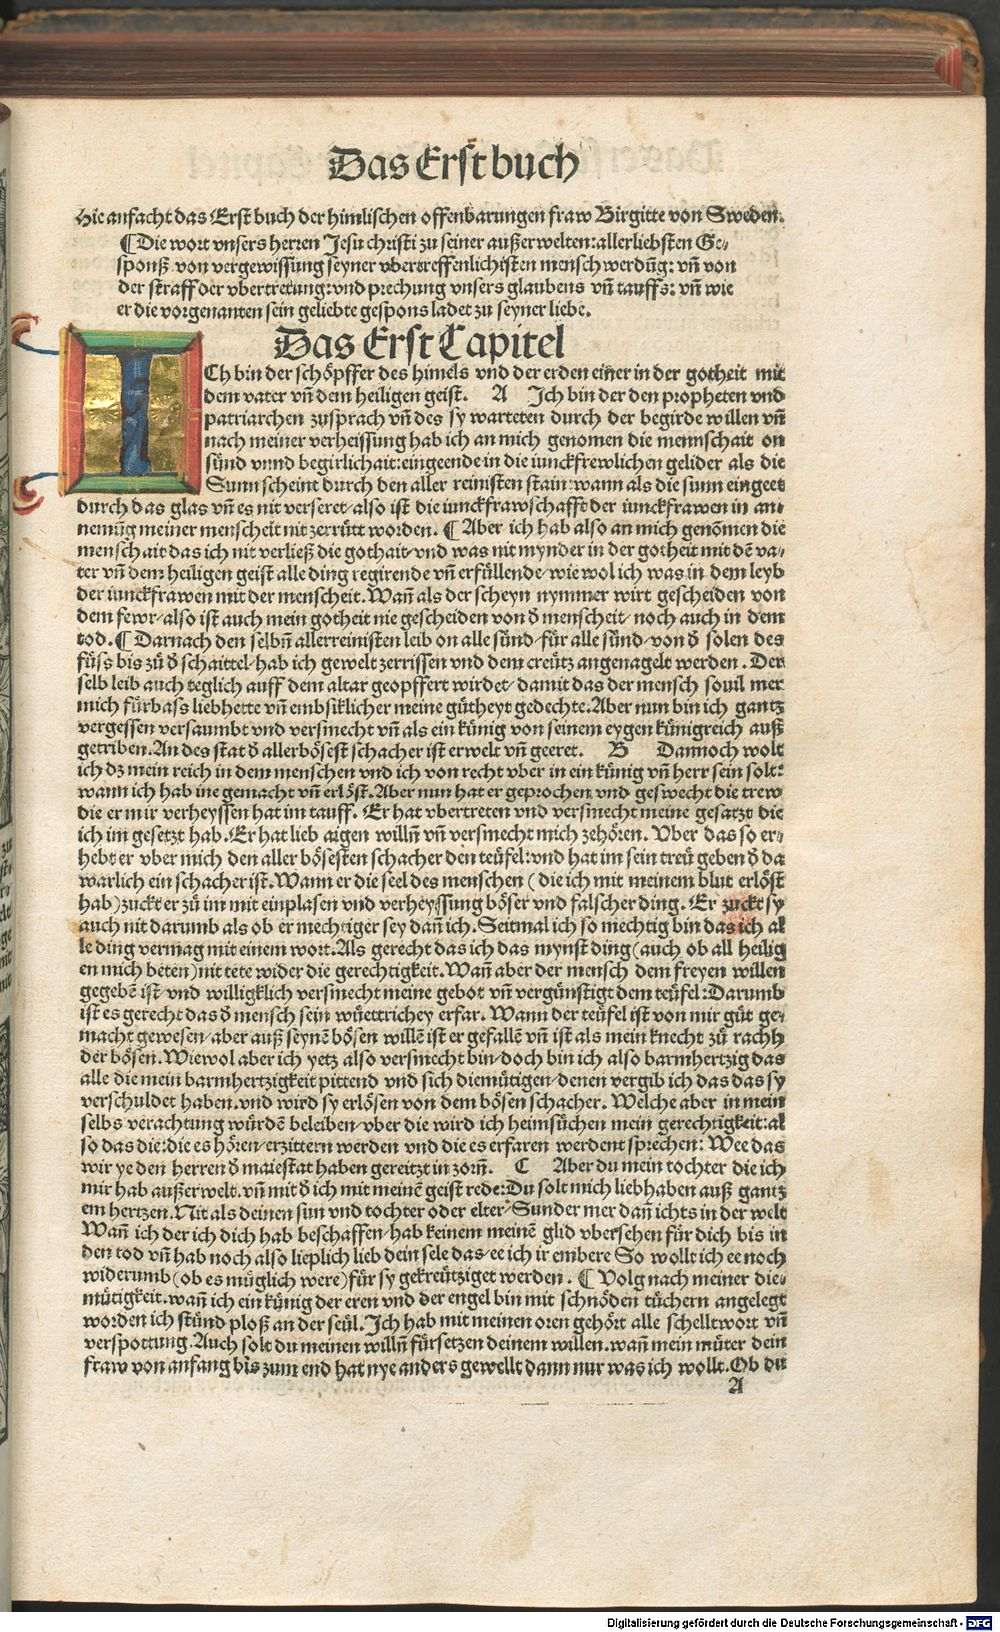 Das Erst buch
Hie anfacht das Erst buch der himlischen offenbarungen fraw Birgitte von Sweden.
¶ Die wort vnsers herren Jesu christi zu seiner außerwelten: allerliebsten Ge⸗
sponß von vergewissung seyner vbertreffenlichisten menschwerdūg: vn̄ von
der straff der vbertretung: vnd prechung vnsers glaubens vn̄ tauffs: vn̄ wie
er die vorgenanten sein geliebte gespons ladet zu seyner liebe.
Das Erst Capitel
ICh bin der schöpffer des himels vnd der erden einer in der gotheit mit
dem vater vn̄ dem heiligen geist. A Jch bin der den propheten vnd
patriarchen zusprach vn̄ des sy warteten durch der begirde willen vn̄
nach meiner verheissung hab ich an mich genomen die mennschait on
sünd vnnd begirlichait: eingeende in die iunckfrewlichen gelider als die
Sunn scheint durch den aller reinisten stain: wann als die sunn eingeet
durch das glas vn̄ es nit verseret/ also ist die iunckfrawschafft der iunckfrawen in an⸗
nemūg meiner menscheit nit zerrütt worden. ¶ Aber ich hab also an mich genōmen die
menschait das ich nit verließ die gothait/ vnd was nit mynder in der gotheit mit dē va⸗
ter vn̄ dem heiligen geist alle ding regirende vn̄ erfüllende/ wie wol ich was in dem leyb
der iunckfrawen mit der menscheit. Wan̄ als der scheyn nymmer wirt gescheiden von
dem fewr/ also ist auch mein gotheit nie gescheiden von d̄ menscheit/ noch auch in dem
tod. ¶ Darnach den selbn̄ allerreinisten leib on alle sünd/ für alle sünd/ von d̄ solen des
füss bis zů d̄ schaittel/ hab ich gewelt zerrissen vnd dem creütz angenagelt werden. Der
selb leib auch teglich auff dem altar geopffert wirdet/ damit das der mensch souil mer
mich fürbass liebhette vn̄ embsiklicher meine gütheyt gedechte. Aber nun bin ich gantz
vergessen versaumbt vnd versmecht vn̄ als ein künig von seinem eygen künigreich auß
getriben. An des stat d̄ allerbösest schacher ist erwelt vn̄ geeret. B Dannoch wolt
ich dz mein reich in dem menschen vnd ich von recht vber in ein künig vn̄ herr sein solt:
wann ich hab ine gemacht vn̄ erlöst. Aber nun hat er geprochen vnd geswecht die trew
die er mir verheyssen hat im tauff. Er hat vbertreten vnd versmecht meine gesatzt die
ich im gesetzt hab. Er hat lieb aigen willn̄ vn̄ versmecht mich zehören. Vber das so er⸗
hebt er vber mich den aller bösesten schacher den teüfel: vnd hat im sein treü geben d̄ da
warlich ein schacher ist. Wann er die seel des menschen (die ich mit meinem blut erlöst
hab) zuckt er zů im mit einplasen vnd verheyssung böser vnd falscher ding. Er zuckt sy
auch nit darumb als ob er mechtiger sey dan̄ ich. Seitmal ich so mechtig bin das ich al
le ding vermag mit einem wort. Als gerecht das ich das mynst ding (auch ob all heilig
en mich beten) nit tete wider die gerechtigkeit. Wan̄ aber der mensch dem freyen willen
gegebē ist/ vnd willigklich versmecht meine gebot vn̄ vergünstigt dem teüfel: Darumb
ist es gerecht das d̄ mensch sein wüettrichey erfar. Wann der teüfel ist von mir güt ge⸗
macht gewesen/ aber auß seynē bösen willē ist er gefallē vn̄ ist als mein knecht zů rachh
der bösen. Wiewol aber ich yetz also versmecht bin/ doch bin ich also barmhertzig das
alle die mein barmhertzigkeit pittend vnd sich diemütigen/ denen vergib ich das das sy
verschuldet haben. vnd wird sy erlösen von dem bösen schacher. Welche aber in mein
selbs verachtung würdē beleiben/ vber die wird ich heimsüchen mein gerechtigkeit: al
so das die: die es hören/ erzittern werden vnd die es erfaren werdent sprechen: Wee das
wir ye den herren d̄ maiestat haben gereitzt in zorn̄. C Aber du mein tochter die ich
mir hab außerwelt. vn̄ mit d̄ ich mit meinē geist rede: Du solt mich liebhaben auß gantz
em hertzen. Nit als deinen sun vnd tochter oder elter/ Sunder mer dan̄ ichts in der welt
Wan̄ ich der ich dich hab beschaffen/ hab keinem meinē glid vbersehen für dich bis in
den tod vn̄ hab noch also lieplich lieb dein sele das/ ee ich ir embere So wollt ich ee noch
widerumb (ob es müglich were) für sy gekreütziget werden. ¶ Volg nach meiner die⸗
mütigkeit. wan̄ ich ein künig der eren vnd der engel bin mit schnöden tüchern angelegt
worden ich stünd ploß an der seül. Jch hab mit meinen oren gehört alle schelltwort vn̄
verspottung. Auch solt du meinen willn̄ fürsetzen deinem willen. wan̄ mein müter dein
fraw von anfang bis zum end hat nye anders gewellt dann nur was ich wollt. Ob du
A
Digitalisierung gefördert durch die Deutsche Forschungsgemeinschaft - DFG